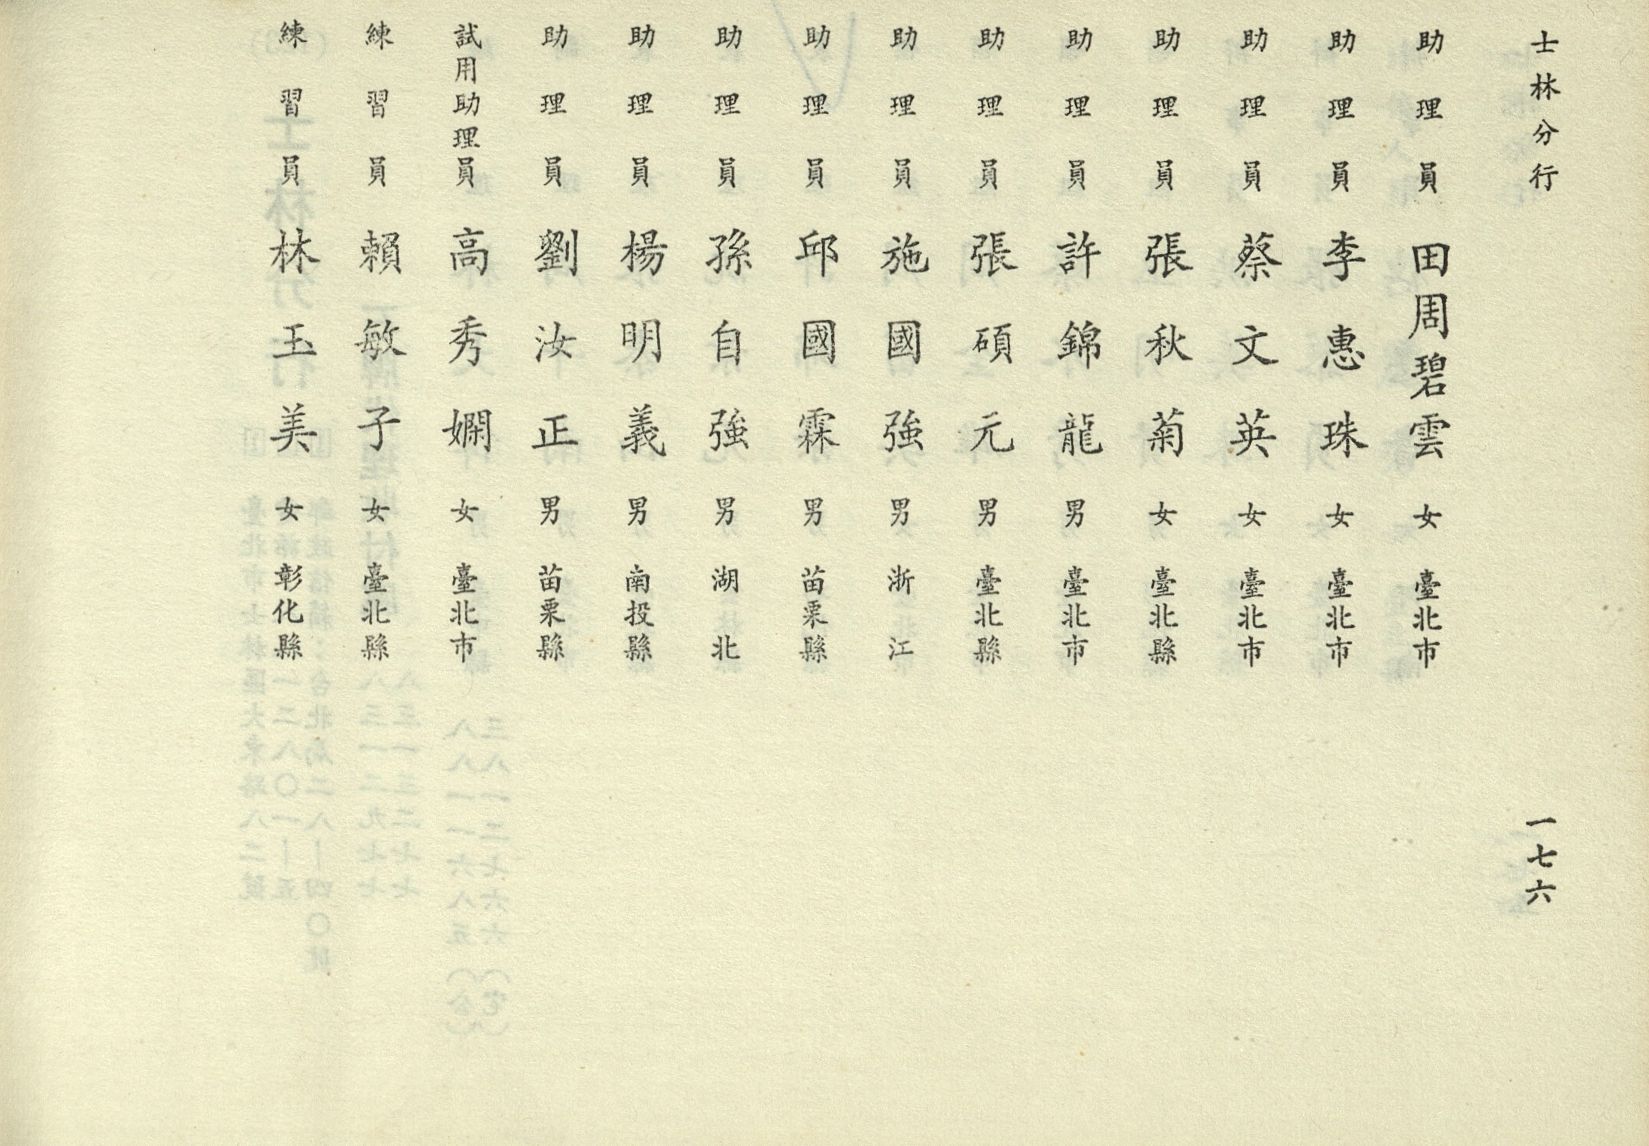 士林分行
一七六
助理員 田周碧雲 女 臺北市
助理員 李惠珠 女 臺北市
助理員 蔡文英 女 臺北市
助理員 張秋菊 女 臺北縣
助理員 許錦龍 男 臺北市
助理員 張碩元 男 臺北縣
助理員 施國強 男 浙江
助理員 邱國霖 男 苗栗縣
助理員 孫自強 男 湖北
助理員 楊明義 男 南投縣
助理員 劉汝正 男 苗栗縣
試用助理員 高秀嫻 女 臺北市
練習員 賴敏子 女 臺北縣
練習員 林玉美 女 彰化縣